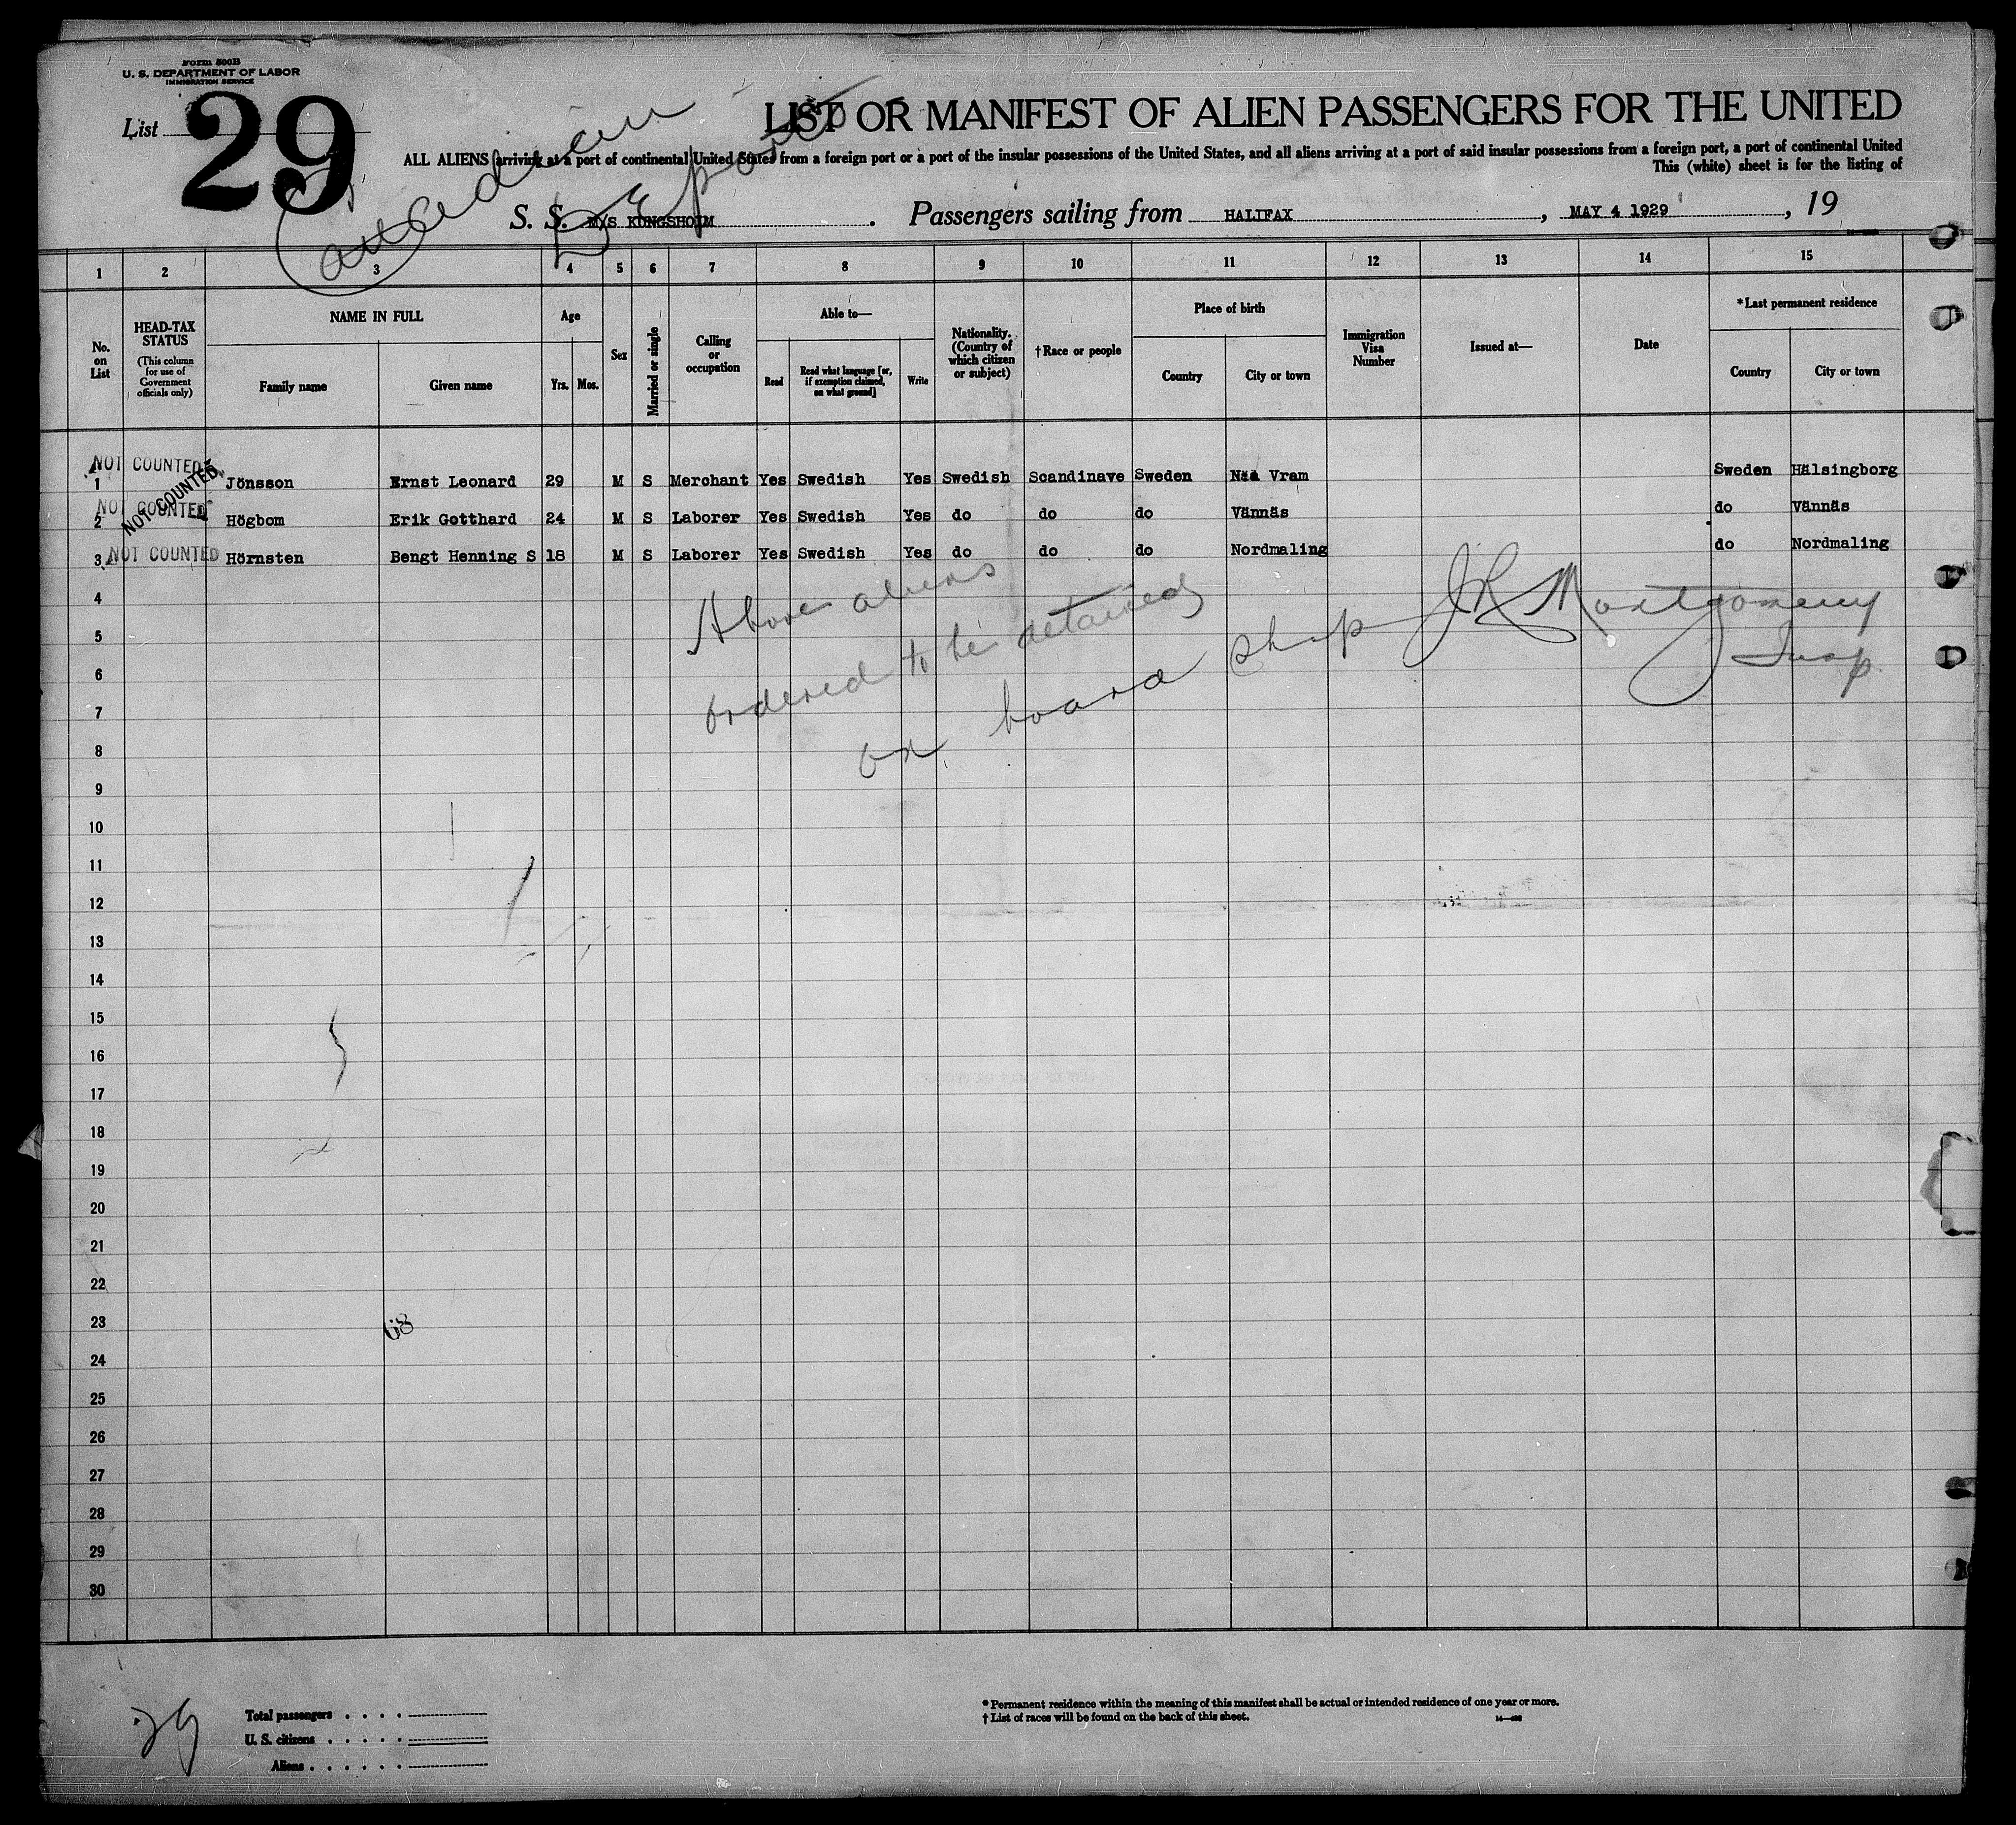 Form 500B
U. S. DEPARTMENT OF LABOR
IMMIGRATION SERVICE
List 29
Canadian Deports
LIST OR MANIFEST OF ALIEN PASSENGERS FOR THE UNITED
ALL ALIENS arriving at a port of continental United States from a foreign port or a port of the insular possessions of the United States, and all aliens arriving at a port of said insular possessions from a foreign port, a port of continental United
This (white) sheet is for the listing of
S. S. M/S KUNGSHOLM. Passengers sailing from HALIFAX, MAY 4 1929, 19
1 2 3 4 5 6 7 8 9 10 11 12 13 14 15
No. on List
HEAD-TAX STATUS
(This column for use of Government officials only)
NAME IN FULL
Family name
Given name
Age
Yrs.
Mos.
Sex
Married or single
Calling or occupation
Able to—
Read
Read what language [or, if exemption claimed, on what ground]
Write
Nationality. (Country of which citizen or subject)
†Race or people
Place of birth
Country
City or town
Immigration Visa Number
Issued at—
Date
*Last permanent residence
Country
City or town
NOT COUNTED
NOT COUNTED
1 Jönsson Ernst Leonard 29 M S Merchant Yes Swedish Yes Swedish Scandinave Sweden Vram Sweden Hälsingborg
NOT COUNTED
2 Högbom Erik Gotthard 24 M S Laborer Yes Swedish Yes do do do Vännäs do Vännäs
3 NOT COUNTED Hörnsten Bengt Henning S 18 M S Laborer Yes Swedish Yes do do do Nordmaling do Nordmaling
4
Above aliens
5
ordered to be detained
6
on board ship J R Montgomery
Insp.
7
8
9
10
11
12
13
14
15
16
17
18
19
20
21
22
23
68
24
25
26
27
28
29
30
29
Total passengers . . . .
U. S. citizens . . . . .
Aliens . . . . . .
* Permanent residence within the meaning of this manifest shall be actual or intended residence of one year or more.
† List of races will be found on the back of this sheet.